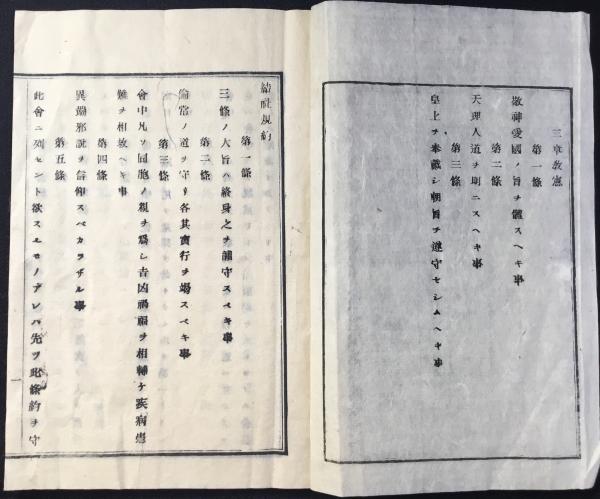 三章教憲
第一條
敬神愛國ノ旨ヲ體スヘキ事
第二條
天理人道ヲ明ニスヘキ事
第三條
皇上ヲ奉戴シ朝旨ヲ遵守セシムヘキ事
結社規約
第一條
三條ノ大旨ハ終身之ヲ謹守スベキ事
第二條
倫常ノ道ヲ守リ各其實行ヲ竭スベキ事
第三條
會中凡ソ同胞ノ親ヲ爲シ吉凶禍福ヲ相輔ケ疾病患
難ヲ相救ヘキ事
第四條
異端邪説ヲ信仰スベカラザル事
第五條
此會ニ列セント欲スルモノアレバ先ツ此條約ヲ守
一